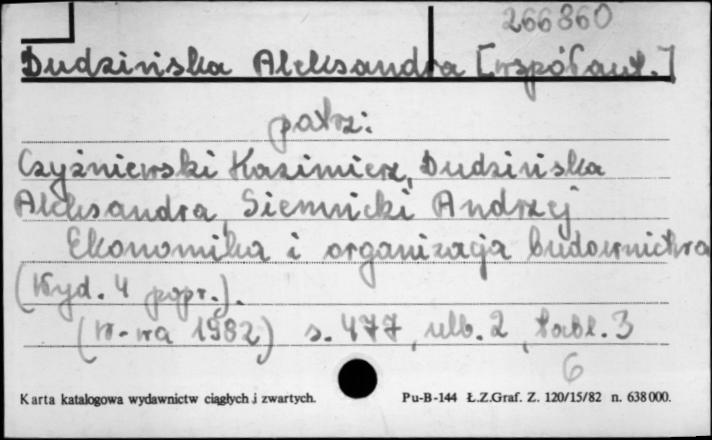 266860
Dudzińska Aleksandra [współaut.]
patrz:
Czyżniewski Kazimierz, Dudzińska
Aleksandra, Siemnicki Andrzej
Ekonomika i organizacja budownictwa
(Wyd. 4 popr.).
(W-wa 1982) s. 477, ulb. 2, tabl. 3
6
Karta katalogowa wydawnictw ciągłych i zwartych. Pu-B-144 Ł.Z.Graf. Z. 120/15/82 n. 638000.